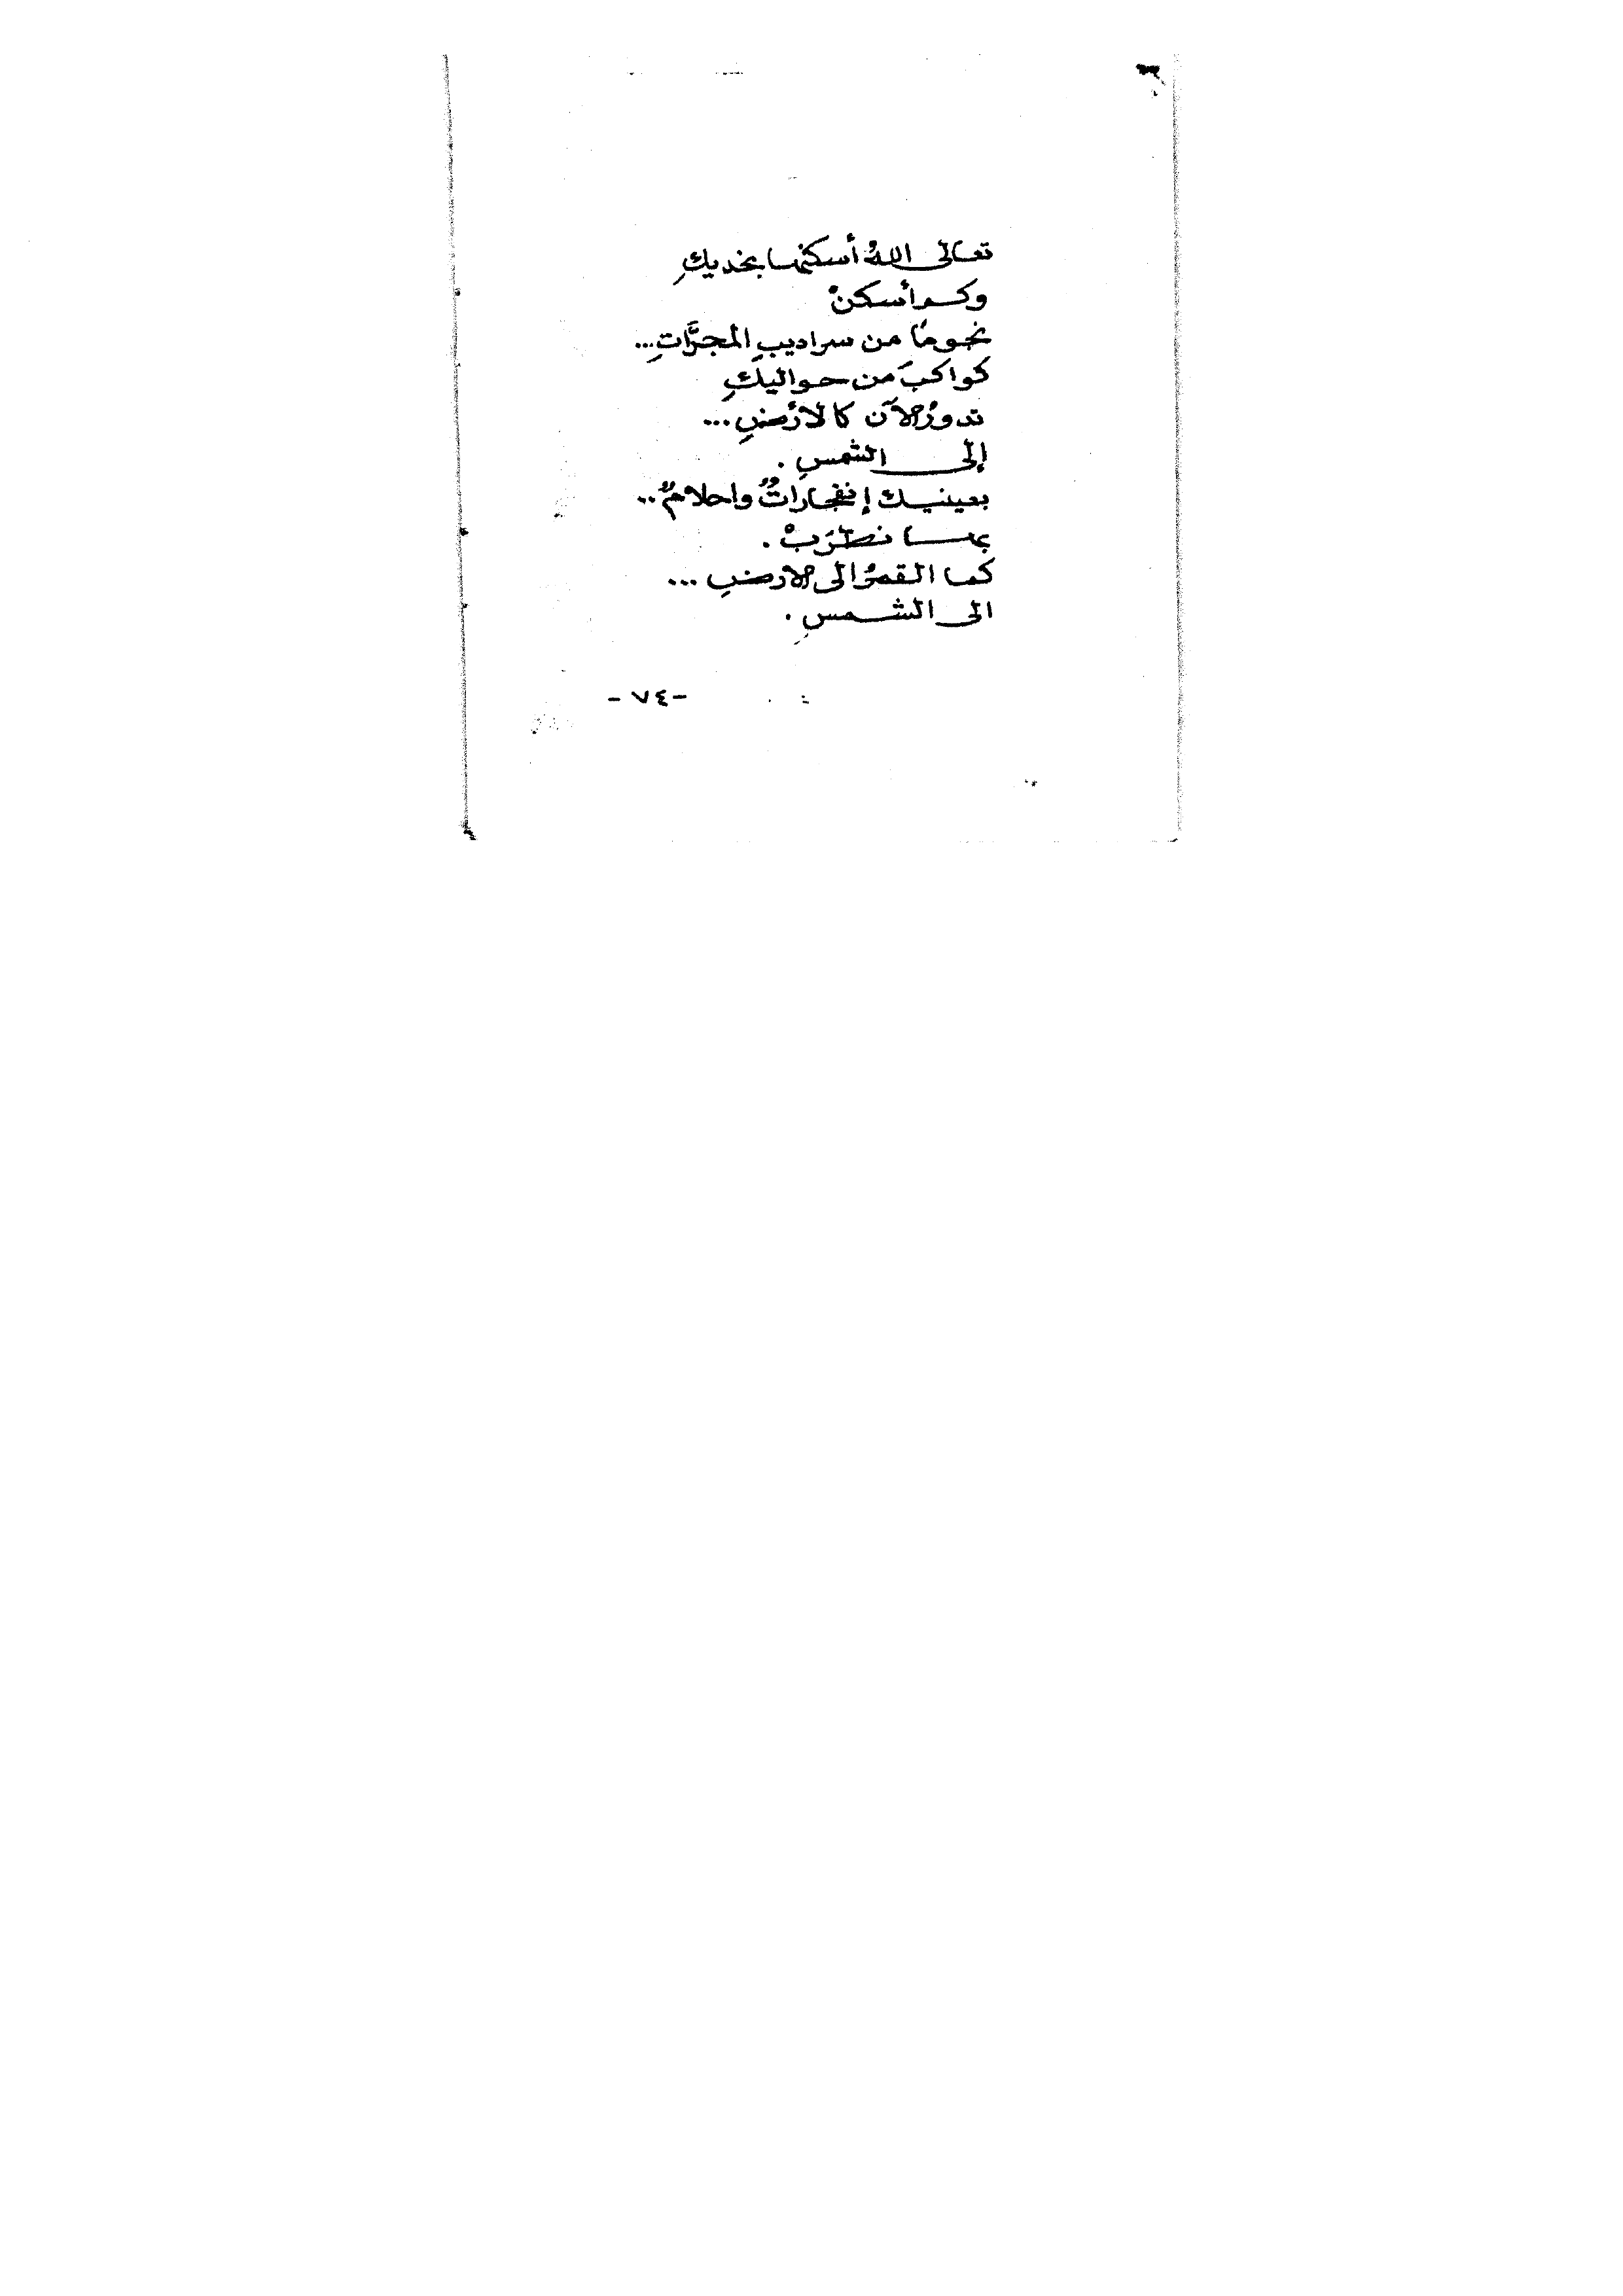 تعالى اللهُ أسكنها بخديكِ
وكم أسكنْ
نجومًا من سراديبِ المجرَّاتِ...
كواكبَ من حواليكِ
تدورُ الآنَ كالأرضِ...
إلى الشمسِ.
بعينيك إنفجاراتٌ واحلامٌ..
بها نطرَبْ.
كما القمرُ الى الارضِ...
الى الشمسِ.
-٧٤-